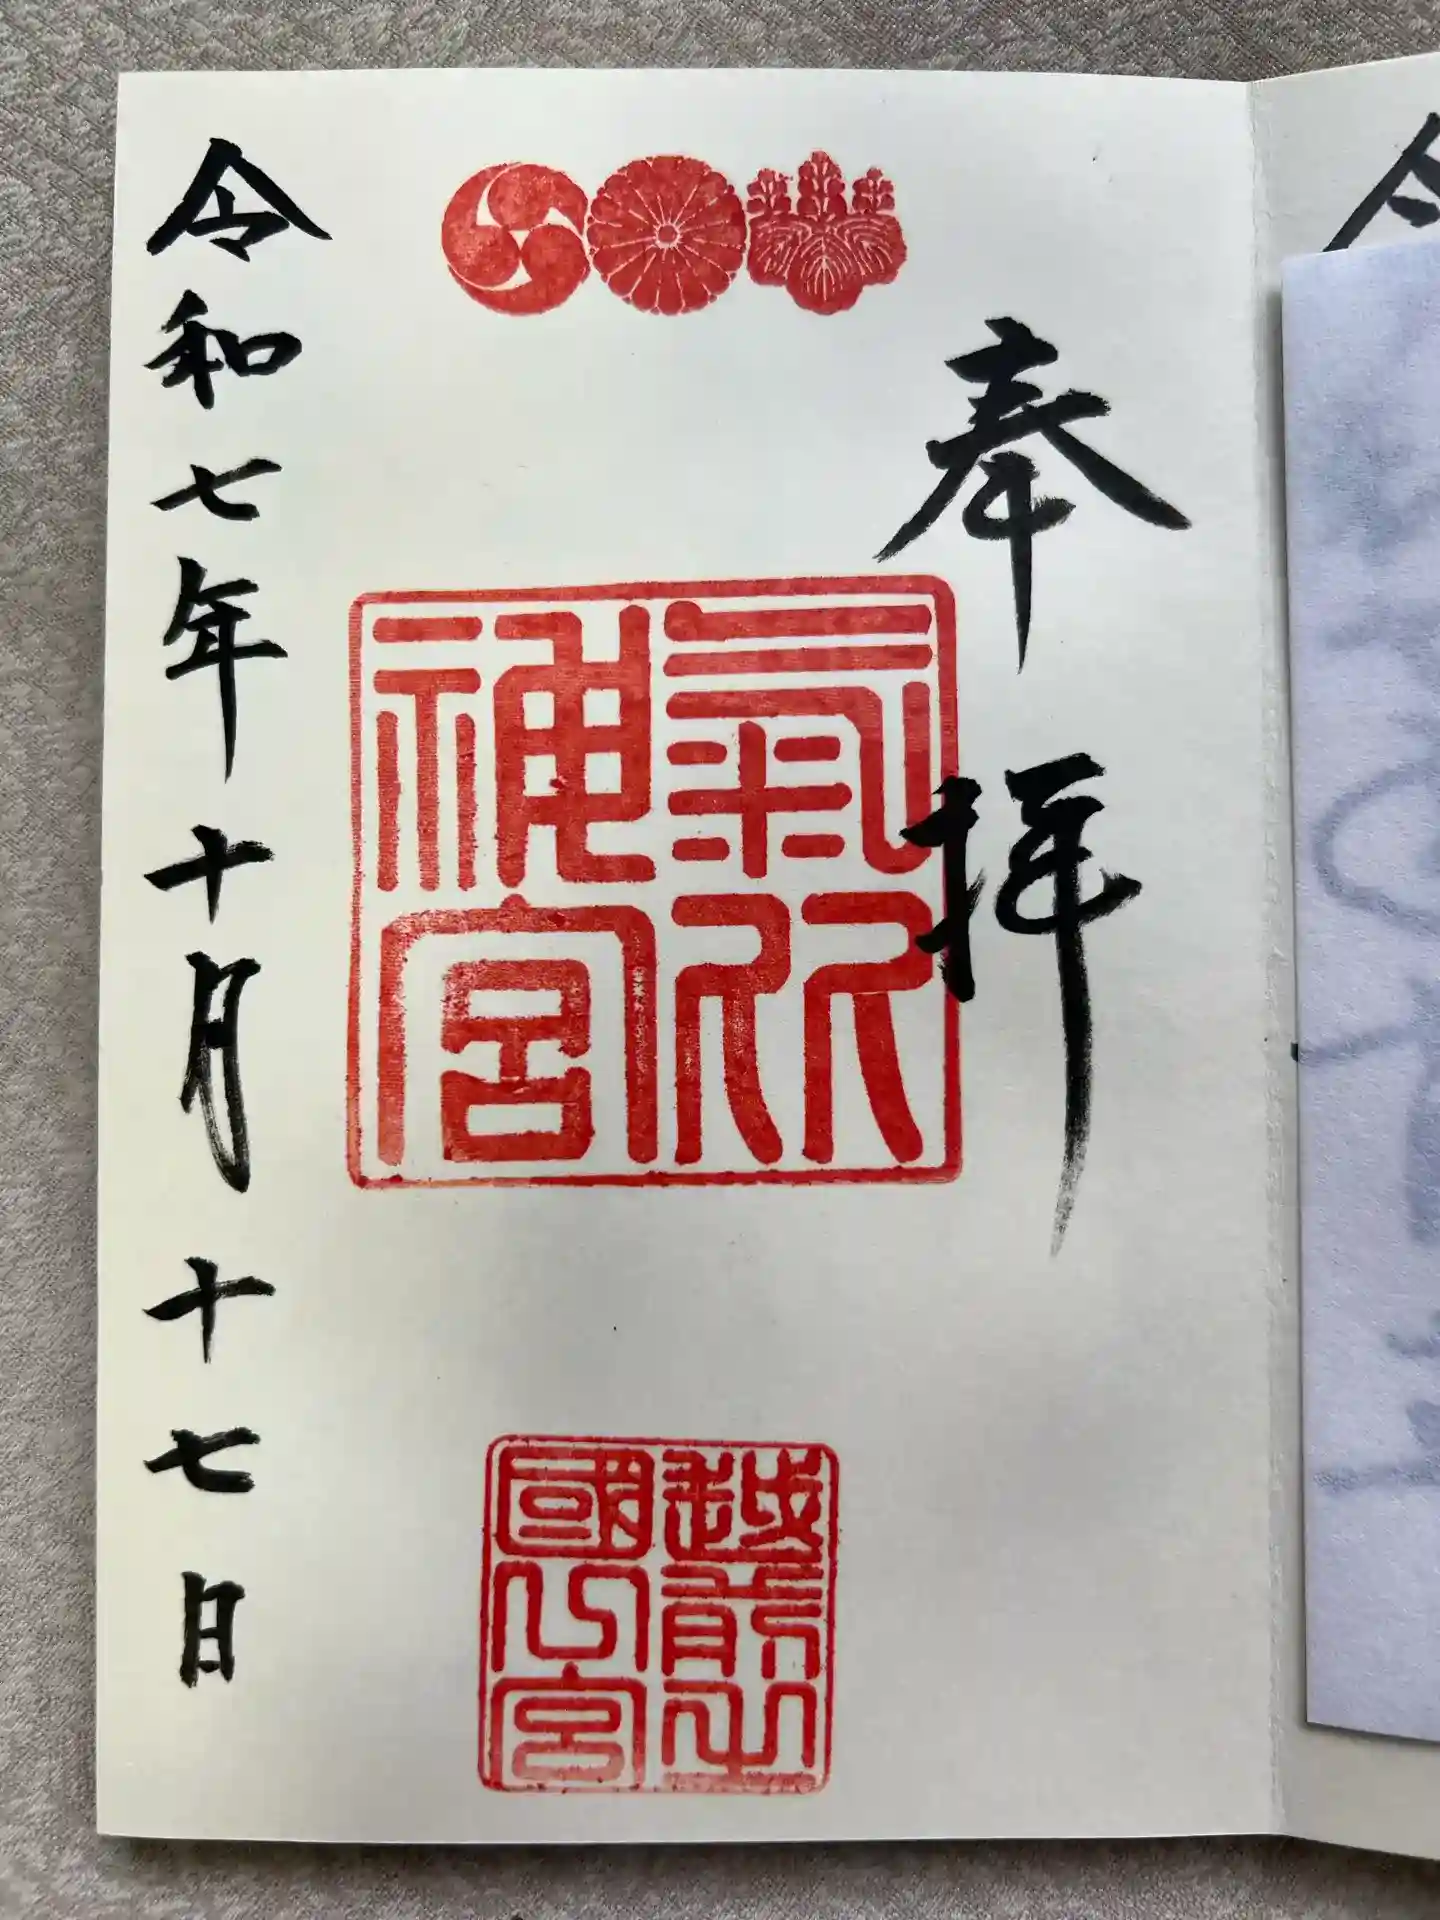 奉拝
氣比
神宮
越前之
國一宮
令和七年十月十七日